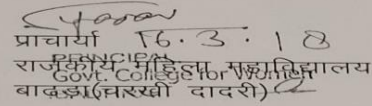 प्राचार्या 16.3.18
PRINCIPAL
राजकीय महिला महाविद्यालय
Govt. College for Women
बाढड़ा(चरखी दादरी)